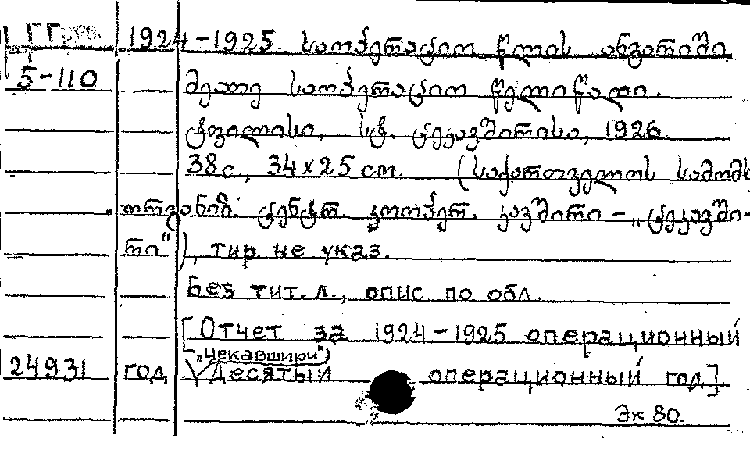 ГГруз 1924-1925 საოპერაციო წლის ანგარიში
5-110 მეათე საოპერაციო წელიწადი.
ტფილისი, სტ. ცეკავშირისა, 1926.
38 с., 34 x 25 см. (საქართველოს სამომხ
მარ. ცენტრ. კოოპერ. კავშირი - „ცეკავში-
რი"), тир. не указ.
Без тит. л., опис по обл.
[Отчет за 1924-1925 операционный
„Чекавшири"
24931 год Десятый операционный год].
Эк 80.